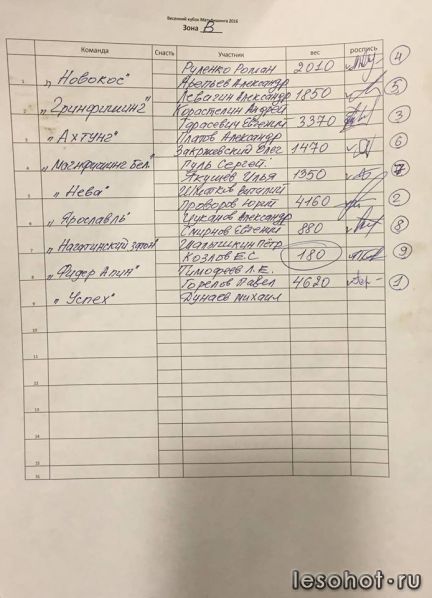 Весенний кубок Матчфишинга 2016
Зона В
Команда Снасть Участник вес роспись
1 „Новокос" Руленко Роман 2010 4
Арефьев Александр
2 „Гринфишинг" Левагин Александр 1850 5
Коростелин Андрей
3 „Ахтунг" Тарасевич Евгений 3370 3
Платов Александр
4 „Матчфишинг Бел." Закржевский Олег 1470 6
Пуль Сергей
5 „Нева" Якушев Илья 1350 7
Шитков Виталий
6 „Ярославль" Проворов Юрий 4160 2
Цуканов Александр
7 „Нагатинский затон" Смирнов Евгений 880 8
Шалышкин Пётр
8 „Фидер Апин" Козлов Е.С 180 9
Тимофеев Л.Е.
9 „Успех" Горелов Павел 4620 1
Дунаев Михаил
10
11
12
13
14
15
16
lesohot.ru